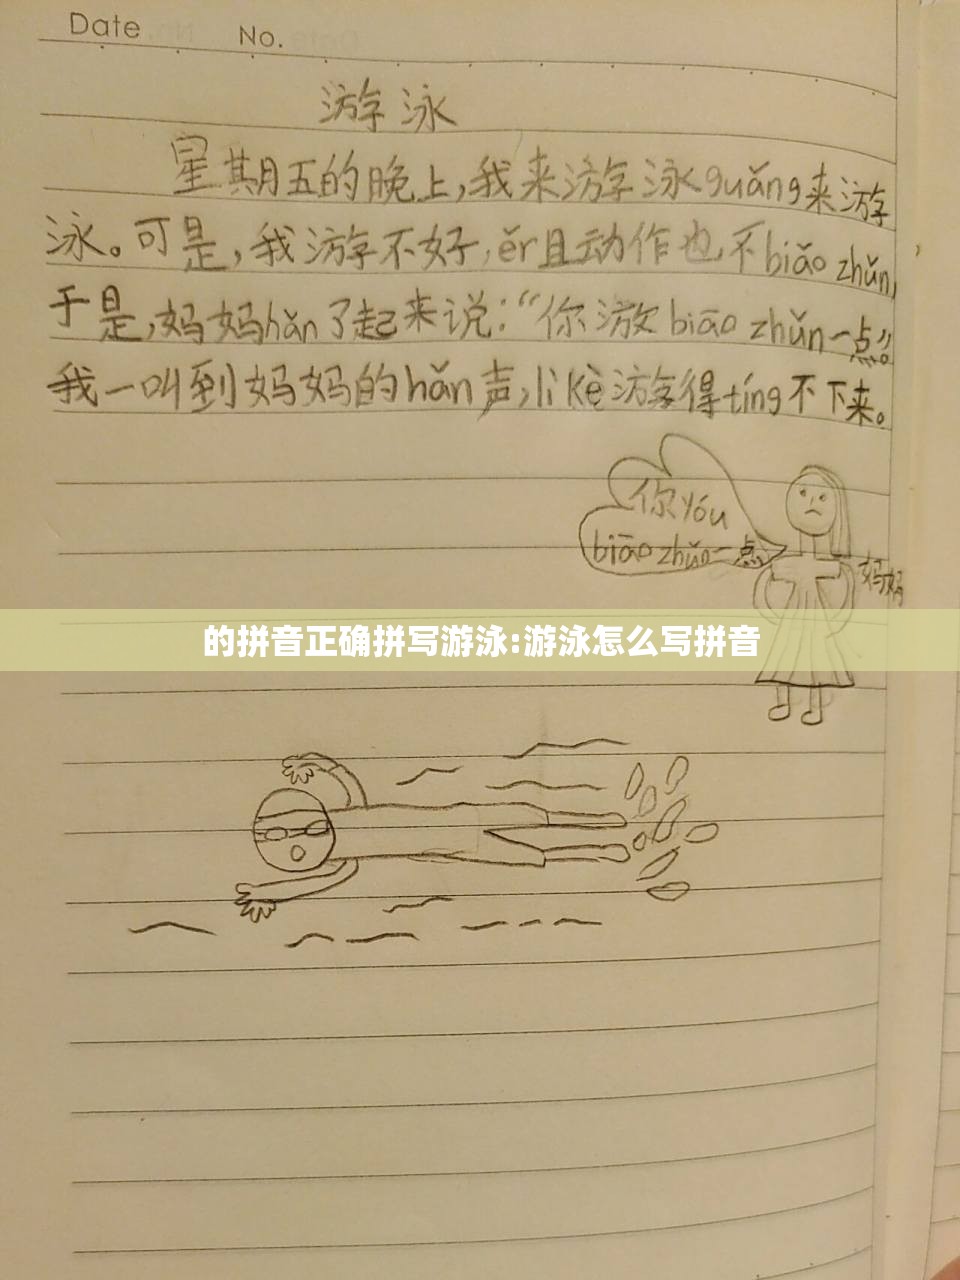 Date
No.
游泳
星期五的晚上,我来游泳guǎng来游
泳。可是,我游不好,ěr且动作也不biāo zhǔn,
于是,妈妈hǎn了起来说:“你游 biāo zhǔn一点!”
我一叫到妈妈的hǎn声,lì kè游得tíng不下来。
你yóu
biāo zhǔn一点
妈妈
的拼音正确拼写游泳:游泳怎么写拼音